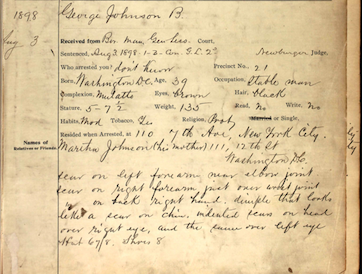 1898
George Johnson B.
Aug 3
Received from Bor. Man Gen. Sess. Court,
Sentenced, Aug 3. 1898. 1-3 - Newburger Judge,
Who arrested you? don't know Precinct No. 21
Born, Washington D.C. Age, 39 Occupation, Stable man
Complexion, Mulatto Eyes, Brown Hair, black
Stature, 5-7 1/2 Weight, 135 Read, No Write, No
Habits, Mod Tobacco, Religion, Prot, Married or Single,
Names of
Relatives or Friends.
Resided when Arrested, at 110 7th Ave, New York City.
Martha Johnson (his mother) 111, 12th St
Washington D.C.
scar on left forearm near elbow joint
scar on right forearm just over wrist joint
" on back right hand, dimple that looks
like a scar on chin, indented scar on head
over right eye, and the same over left eye
Hat 6 7/8. Shoes 8